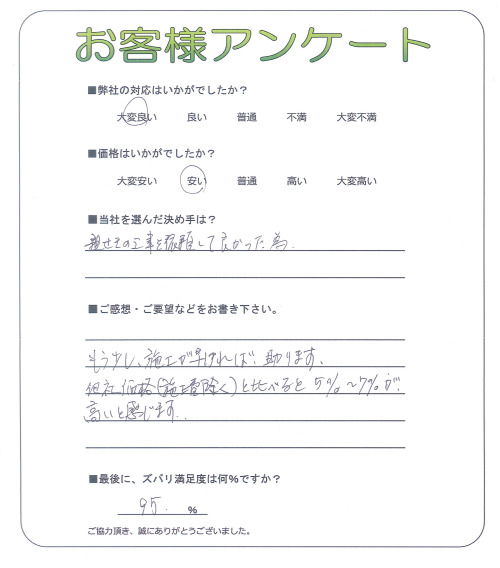 お客様アンケート
■弊社の対応はいかがでしたか?
大変良い 良い 普通 不満 大変不満
■価格はいかがでしたか?
大変安い 安い 普通 高い 大変高い
■当社を選んだ決め手は?
工事を依頼して良かった為.
■ご感想・ご要望などをお書き下さい。
もう少し、施工が早ければ、助ります、
他社価格(施工費除く)と比べると5%~7%が、
高いと感じます.
■最後に、ズバリ満足度は何%ですか?
95. %
ご協力頂き、誠にありがとうございました。